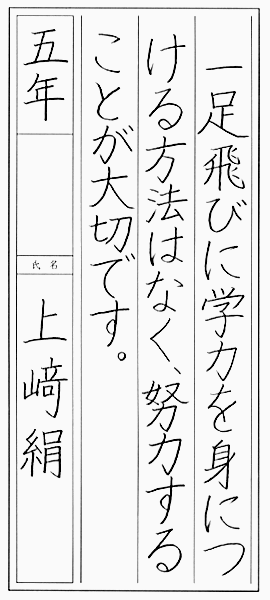 一足飛びに学力を身につ
ける方法はなく、努力する
ことが大切です。
五年
氏名
上﨑絹